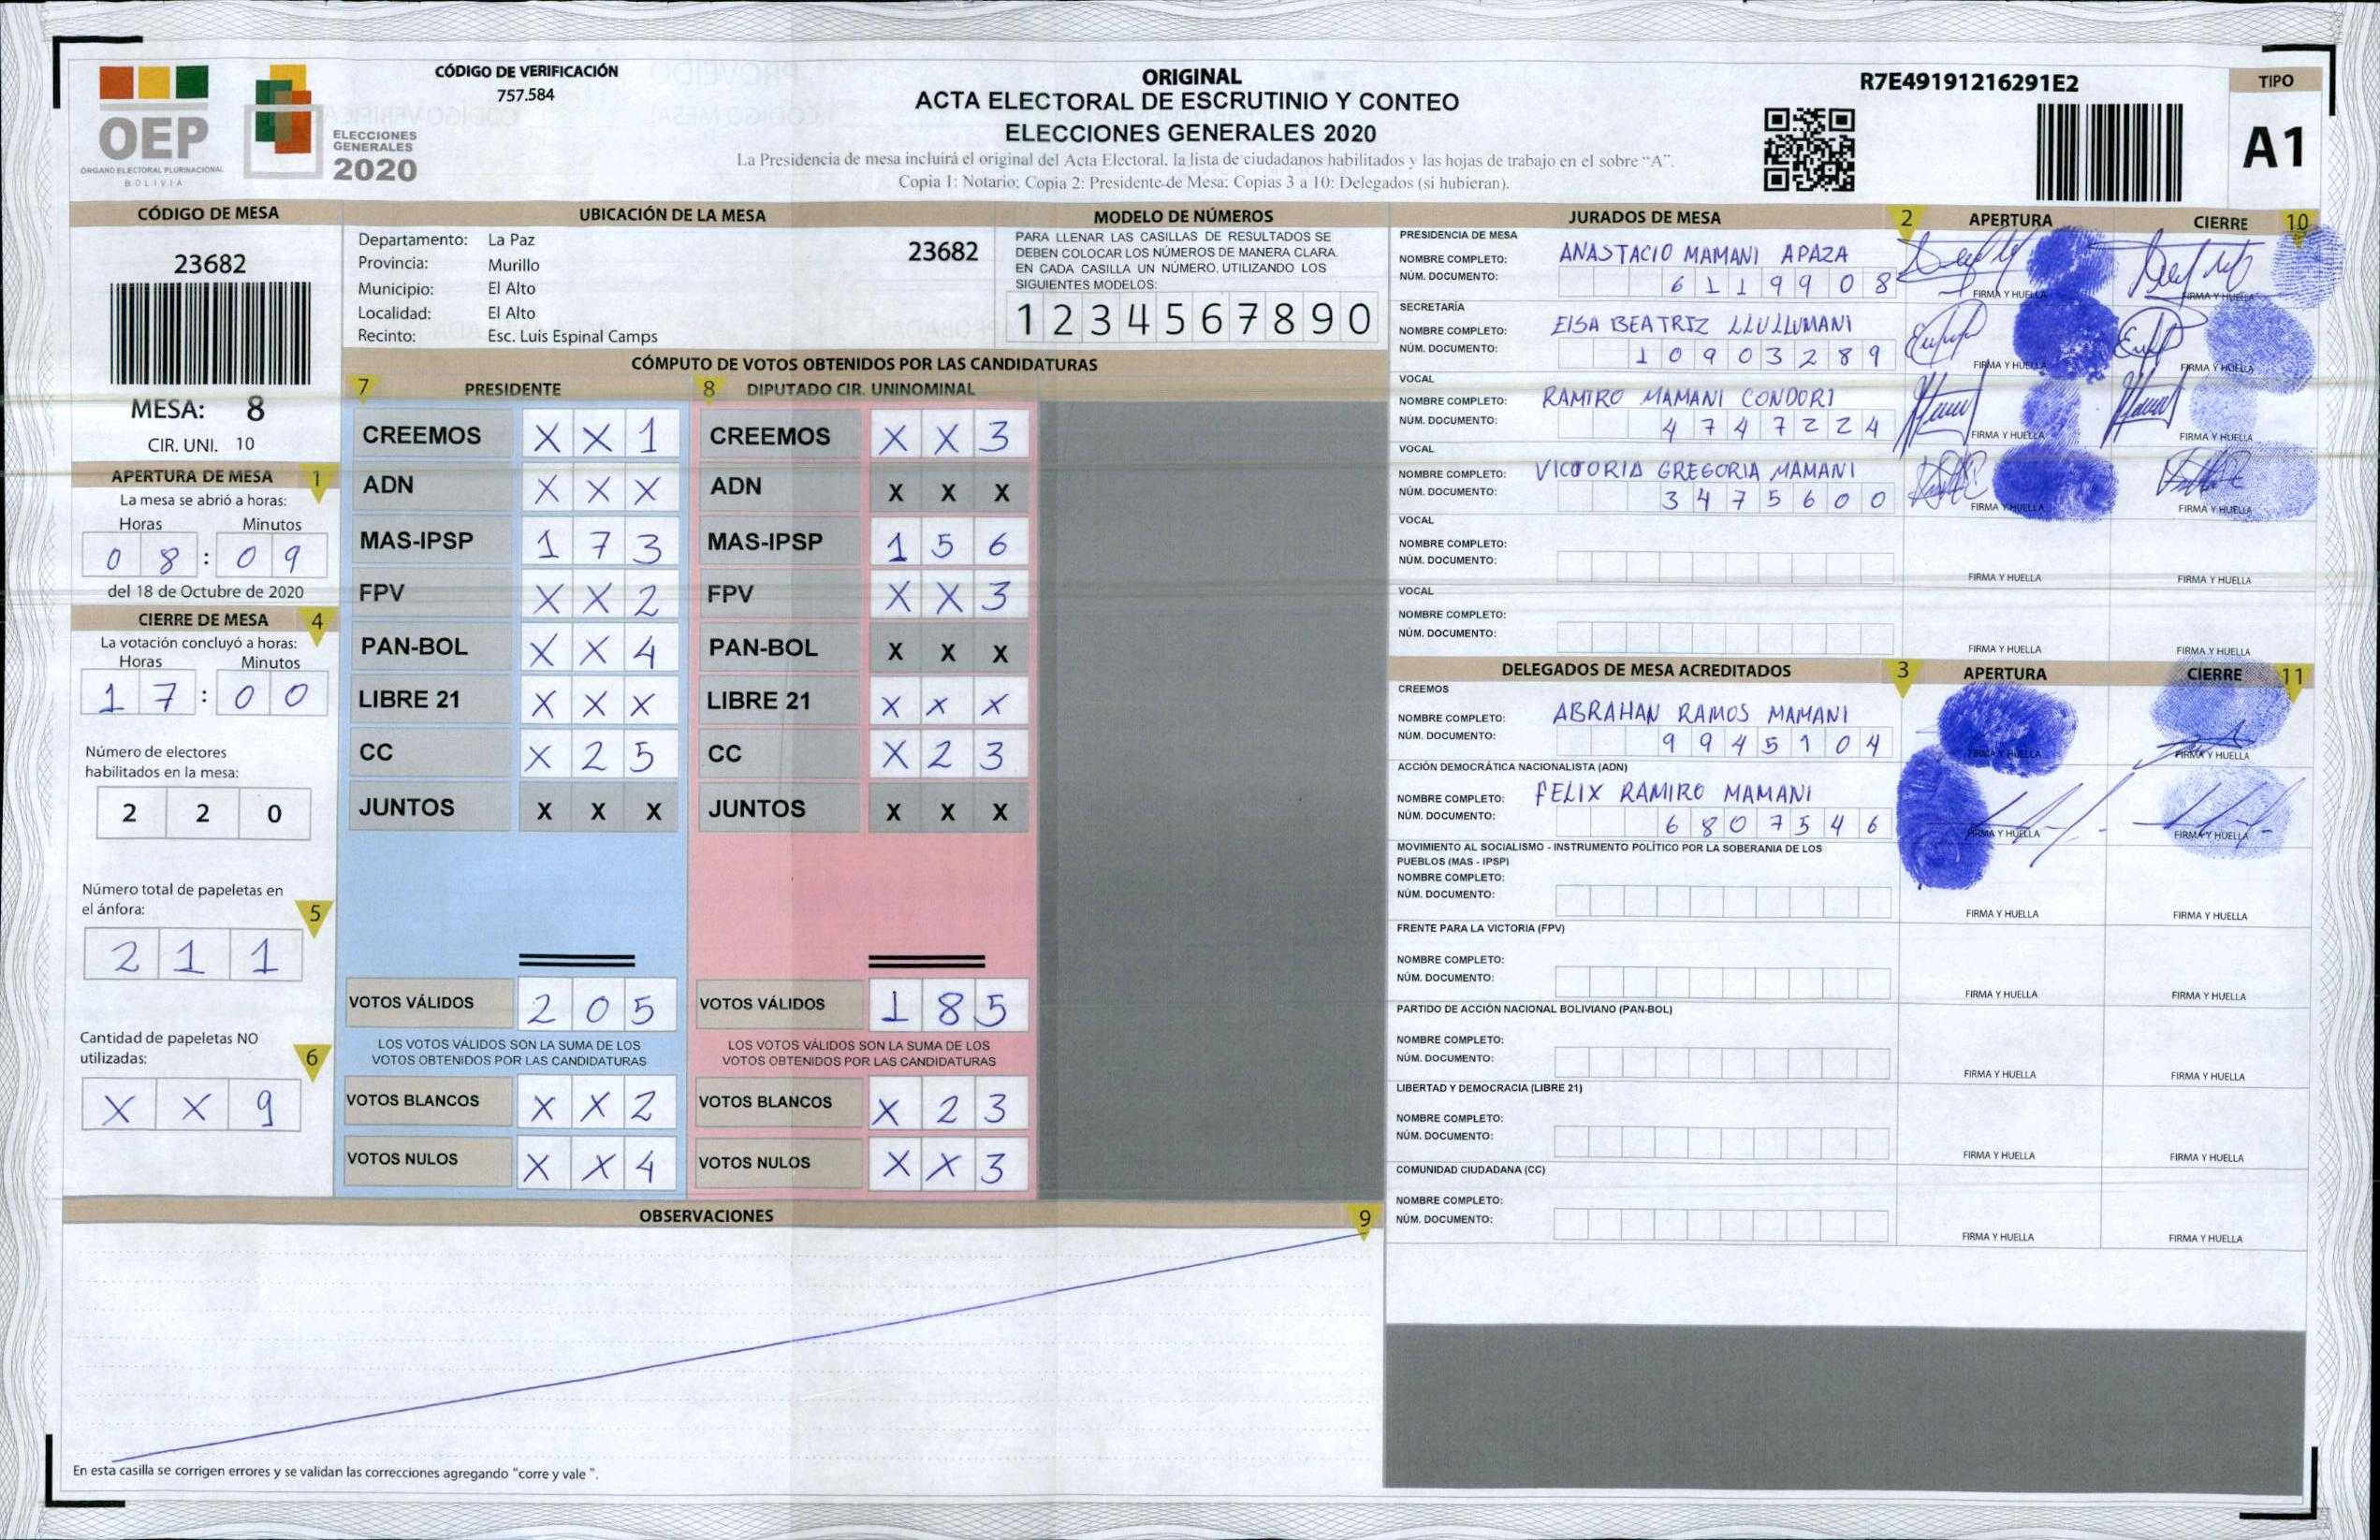 OEP
ÓRGANO ELECTORAL PLURINACIONAL
BOLIVIA
ELECCIONES
GENERALES
2020
CÓDIGO DE VERIFICACIÓN
757.584
ORIGINAL
ACTA ELECTORAL DE ESCRUTINIO Y CONTEO
ELECCIONES GENERALES 2020
La Presidencia de mesa incluirá el original del Acta Electoral, la lista de ciudadanos habilitados y las hojas de trabajo en el sobre “A”.
Copia 1: Notario; Copia 2: Presidente de Mesa; Copias 3 a 10: Delegados (si hubieran).
R7E49191216291E2
TIPO
A1
CÓDIGO DE MESA
23682
MESA: 8
CIR. UNI. 10
APERTURA DE MESA 1
La mesa se abrió a horas:
Horas Minutos
0 8 : 0 9
del 18 de Octubre de 2020
CIERRE DE MESA 4
La votación concluyó a horas:
Horas Minutos
1 7 : 0 0
Número de electores
habilitados en la mesa:
2 2 0
Número total de papeletas en
el ánfora: 5
2 1 1
Cantidad de papeletas NO
utilizadas: 6
X X 9
UBICACIÓN DE LA MESA
Departamento: La Paz 23682
Provincia: Murillo
Municipio: El Alto
Localidad: El Alto
Recinto: Esc. Luis Espinal Camps
MODELO DE NÚMEROS
PARA LLENAR LAS CASILLAS DE RESULTADOS SE
DEBEN COLOCAR LOS NÚMEROS DE MANERA CLARA.
EN CADA CASILLA UN NÚMERO, UTILIZANDO LOS
SIGUIENTES MODELOS:
1 2 3 4 5 6 7 8 9 0
CÓMPUTO DE VOTOS OBTENIDOS POR LAS CANDIDATURAS
7 PRESIDENTE 8 DIPUTADO CIR. UNINOMINAL
CREEMOS X X 1 CREEMOS X X 3
ADN X X X ADN X X X
MAS-IPSP 1 7 3 MAS-IPSP 1 5 6
FPV X X 2 FPV X X 3
PAN-BOL X X 4 PAN-BOL X X X
LIBRE 21 X X X LIBRE 21 X X X
CC X 2 5 CC X 2 3
JUNTOS X X X JUNTOS X X X
VOTOS VÁLIDOS 2 0 5 VOTOS VÁLIDOS 1 8 5
LOS VOTOS VÁLIDOS SON LA SUMA DE LOS LOS VOTOS VÁLIDOS SON LA SUMA DE LOS
VOTOS OBTENIDOS POR LAS CANDIDATURAS VOTOS OBTENIDOS POR LAS CANDIDATURAS
VOTOS BLANCOS X X 2 VOTOS BLANCOS X 2 3
VOTOS NULOS X X 4 VOTOS NULOS X X 3
OBSERVACIONES 9
En esta casilla se corrigen errores y se validan las correcciones agregando "corre y vale ".
JURADOS DE MESA 2 APERTURA CIERRE 10
PRESIDENCIA DE MESA
NOMBRE COMPLETO: ANASTACIO MAMANI APAZA
NÚM. DOCUMENTO: 6 1 1 9 9 0 8
FIRMA Y HUELLA FIRMA Y HUELLA
SECRETARÍA
NOMBRE COMPLETO: ElSA BEATRIZ LLULLUMANI
NÚM. DOCUMENTO: 1 0 9 0 3 2 8 9
FIRMA Y HUELLA FIRMA Y HUELLA
VOCAL
NOMBRE COMPLETO: RAMIRO MAMANI CONDORI
NÚM. DOCUMENTO: 4 7 4 7 2 2 4
FIRMA Y HUELLA FIRMA Y HUELLA
VOCAL
NOMBRE COMPLETO: VICTORIA GREGORIA MAMANI
NÚM. DOCUMENTO: 3 4 7 5 6 0 0
FIRMA Y HUELLA FIRMA Y HUELLA
VOCAL
NOMBRE COMPLETO:
NÚM. DOCUMENTO:
FIRMA Y HUELLA FIRMA Y HUELLA
VOCAL
NOMBRE COMPLETO:
NÚM. DOCUMENTO:
FIRMA Y HUELLA FIRMA Y HUELLA
DELEGADOS DE MESA ACREDITADOS 3 APERTURA CIERRE 11
CREEMOS
NOMBRE COMPLETO: ABRAHAN RAMOS MAMANI
NÚM. DOCUMENTO: 9 9 4 5 1 0 4
FIRMA Y HUELLA FIRMA Y HUELLA
ACCIÓN DEMOCRÁTICA NACIONALISTA (ADN)
NOMBRE COMPLETO: FELIX RAMIRO MAMANI
NÚM. DOCUMENTO: 6 8 0 7 5 4 6
FIRMA Y HUELLA FIRMA Y HUELLA
MOVIMIENTO AL SOCIALISMO - INSTRUMENTO POLÍTICO POR LA SOBERANIA DE LOS
PUEBLOS (MAS - IPSP)
NOMBRE COMPLETO:
NÚM. DOCUMENTO:
FIRMA Y HUELLA FIRMA Y HUELLA
FRENTE PARA LA VICTORIA (FPV)
NOMBRE COMPLETO:
NÚM. DOCUMENTO:
FIRMA Y HUELLA FIRMA Y HUELLA
PARTIDO DE ACCIÓN NACIONAL BOLIVIANO (PAN-BOL)
NOMBRE COMPLETO:
NÚM. DOCUMENTO:
FIRMA Y HUELLA FIRMA Y HUELLA
LIBERTAD Y DEMOCRACIA (LIBRE 21)
NOMBRE COMPLETO:
NÚM. DOCUMENTO:
FIRMA Y HUELLA FIRMA Y HUELLA
COMUNIDAD CIUDADANA (CC)
NOMBRE COMPLETO:
NÚM. DOCUMENTO:
FIRMA Y HUELLA FIRMA Y HUELLA